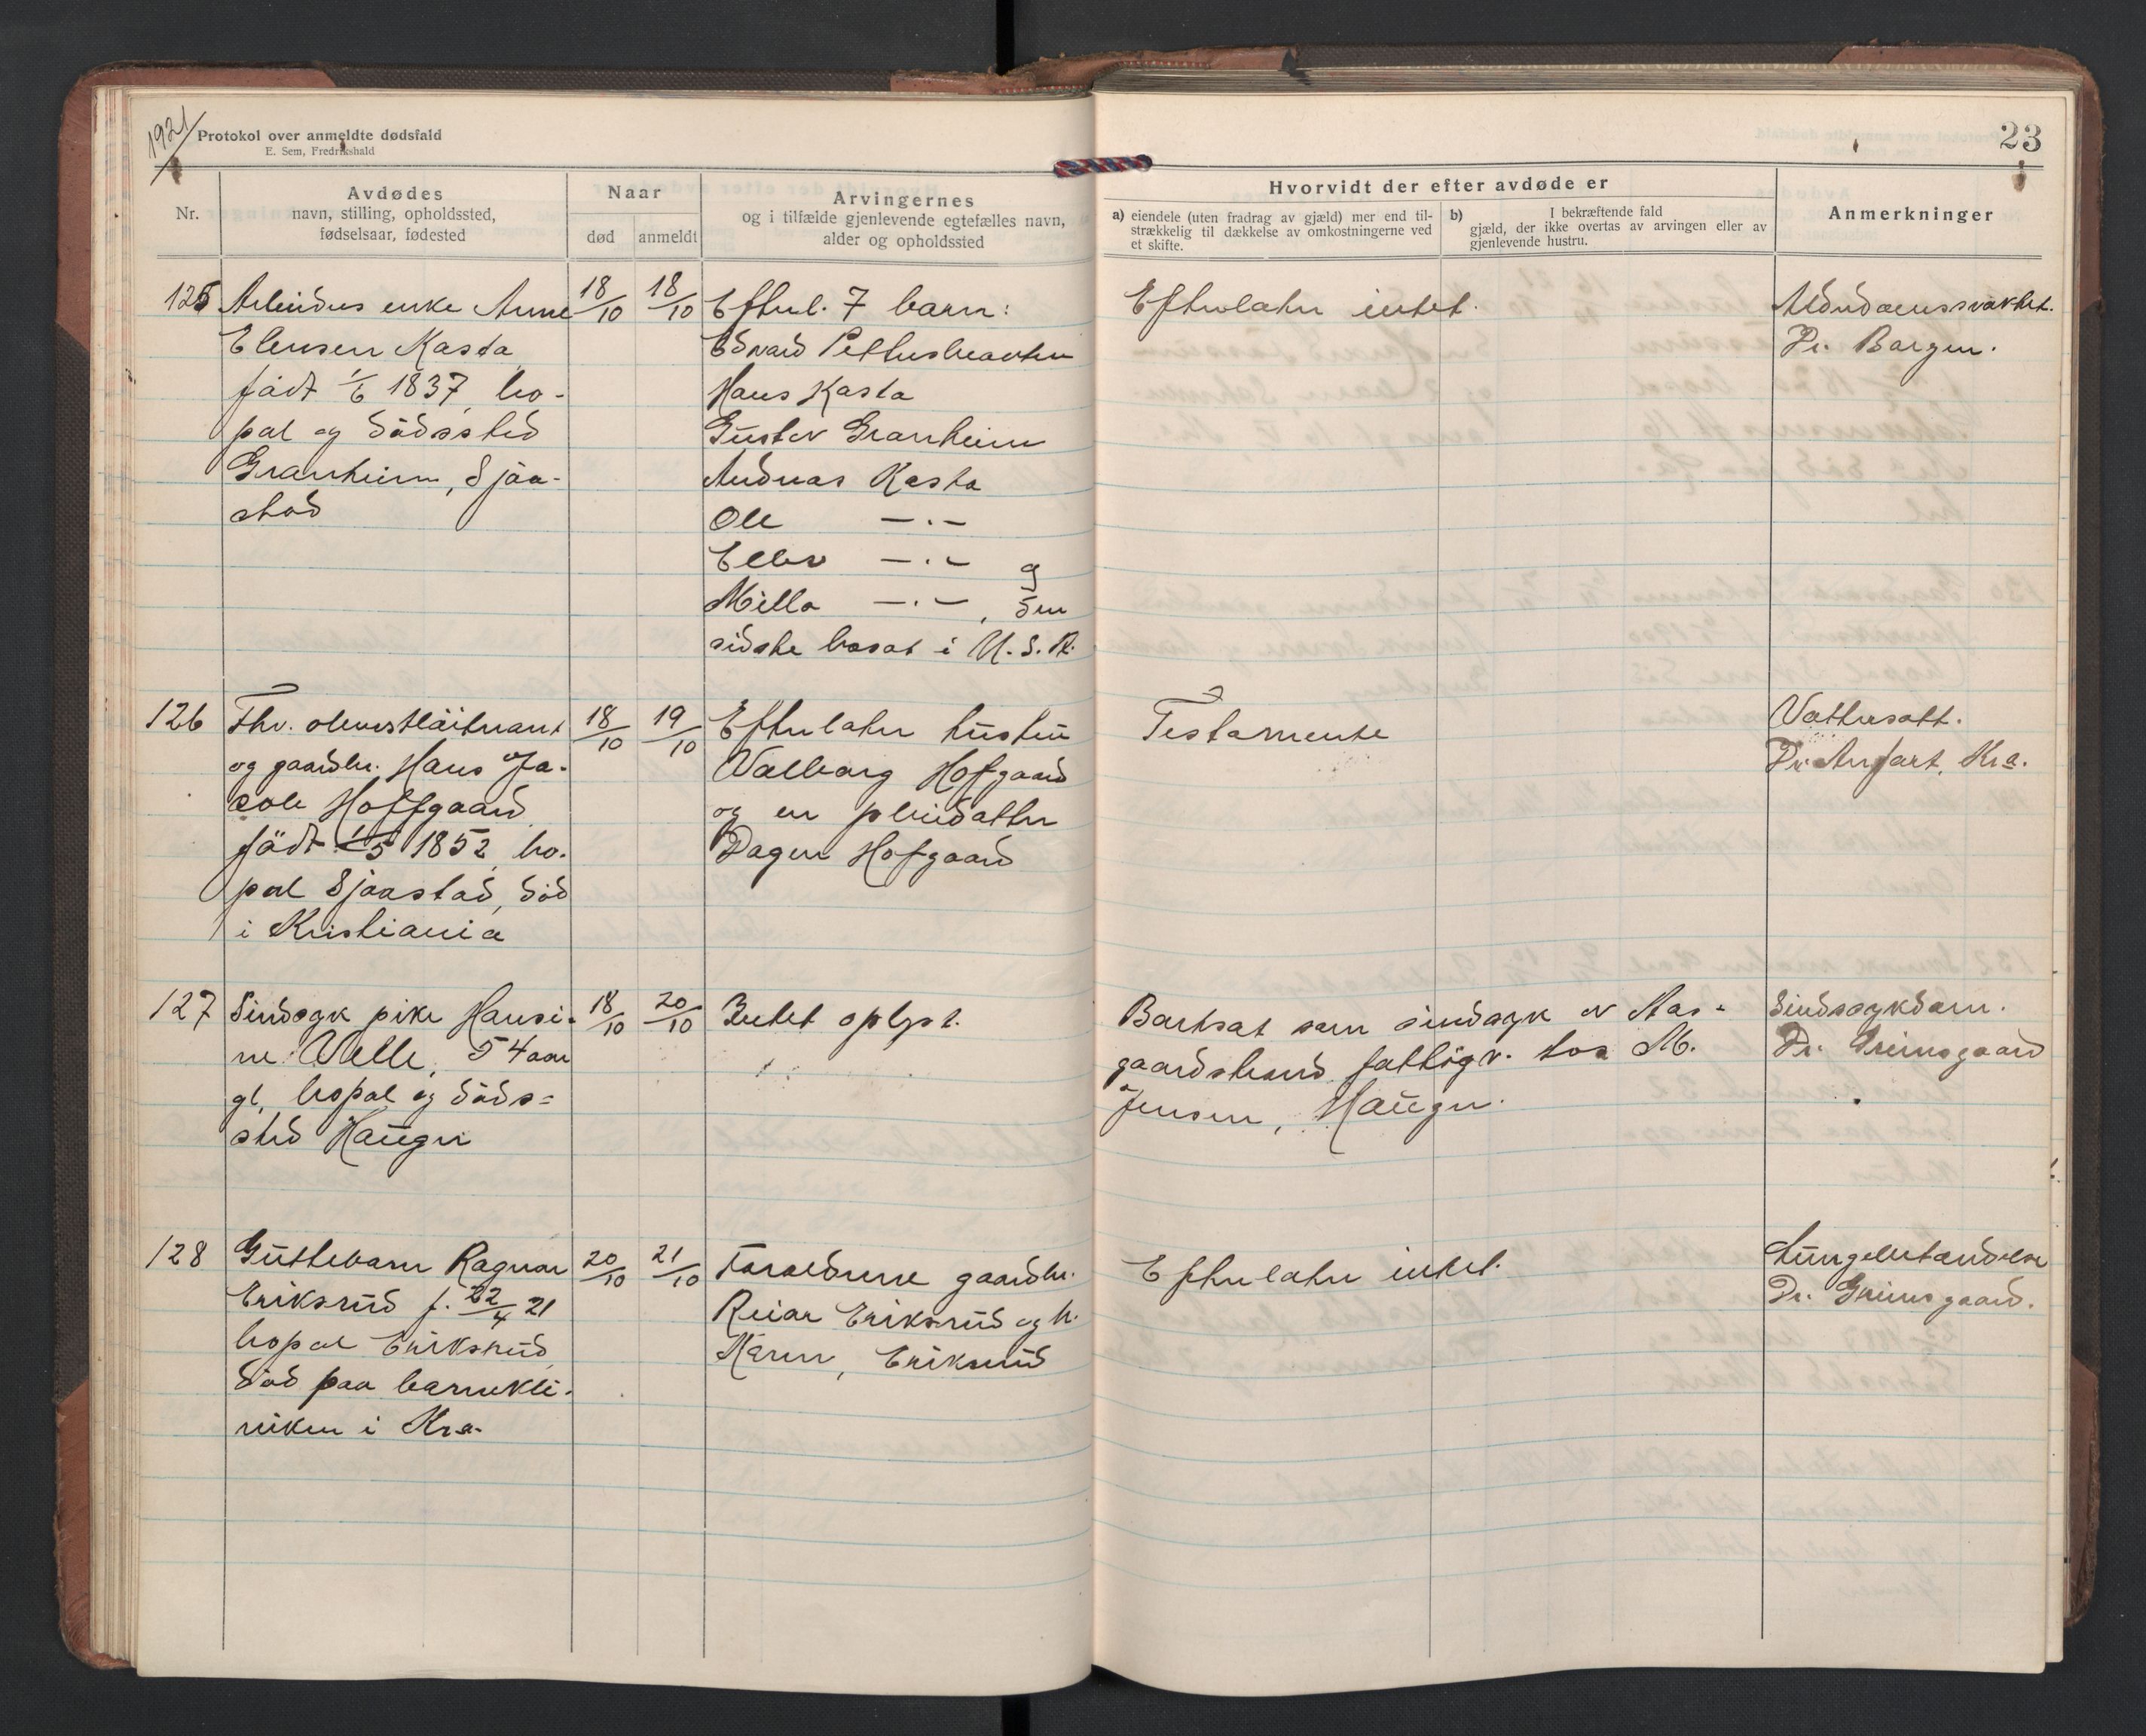 1921
Protokol over anmeldte dødsfald
E. Sem, Fredrikshald
23
Nr.
Avdødes
navn, stilling, opholdssted,
fødselsaar, fødested
Naar
død
anmeldt
Arvingernes
og i tilfælde gjenlevende egtefælles navn,
alder og opholdssted
Hvorvidt der efter avdøde er
a) eiendele (uten fradrag av gjæld) mer end til-
strækkelig til dækkelse av omkostningerne ved
et skifte.
b) I bekræftende fald
gjæld, der ikke overtas av arvingen eller av
gjenlevende hustru.
Anmerkninger
125
Arbeiders enke Anne
Elensen Kasta,
født 1/6 1837, bo-
pæl og dødssted
Granheim, Sjaa-
stad
18/10
18/10
Efterl. 7 barn:
Edvard Pettersbraaten
Hans Kasta
Gustav Granheim
Andreas Kasta
Ole —.—
Ellev —.— og
Milla —.—, den
sidste bosat i U.S.A.
Efterlater intet.
Alderdomssvakhet.
Dr. Borgen.
126
Fhv. oberstløitnant
og gaardbr. Hans Ja-
cob Hoffgaard,
født 1/5 1852, bo-
pæl Sjaastad, død
i Kristiania
18/10
19/10
Efterlater hustru
Valborg Hofgaard
og en pleiedatter
Dagen Hofgaard
Testamente
Vattersott.
Dr. Kra.
127
Sindsyk pike Hansi-
ne Velle, 54 aar
gl, bopæl og døds-
sted Haugen
18/10
20/10
Intet oplyst.
Bortsat som sindsyk av Aas-
gaardstrand fattigv. hos M.
Jensen, Haugen.
Sindssykdom.
Dr. Grimsgaard
128
Guttebarn Ragnar
Eriksrud f. 22/4 21
bopæl Eriksrud,
død paa barnekli-
niken i Kra.
20/10
21/10
Foræeldrene gaardbr.
Reiar Eriksrud og h.
Karen, Eriksrud
Efterlater intet.
Lungebetændelse
Dr. Grimsgaard.